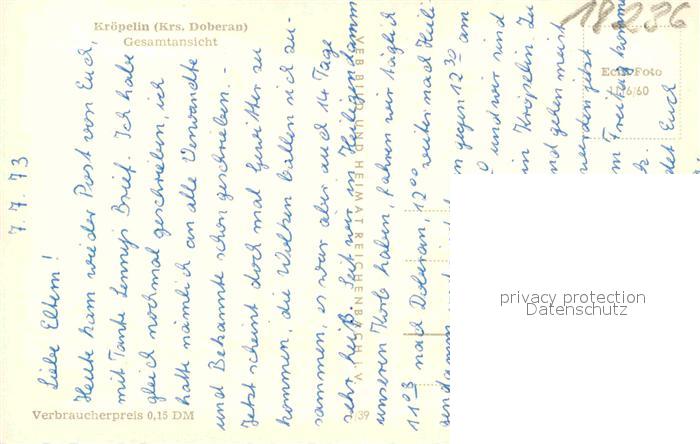 Kröpelin (Krs. Doberan)
Gesamtansicht
18236
Echt Foto
11/6/60
VEB BILD UND HEIMAT REICHENBACH i. V.
Verbraucherpreis 0,15 DM
39
7.7.73
Liebe Eltern!
Heute kam wieder Post von Euch,
mit Tante Lennys Brief. Ich habe
gleich nochmal geschrieben, ich
hatte nämlich an alle Verwandte
und Bekannte schon geschrieben. -
Jetzt scheint doch mal Gewitter zu
kommen, die Wolken ballen sich zu-
sammen, es war aber auch 14 Tage
sehr heiß. Seit wir in Heiligendamm
unseren Korb haben, fahren wir täglich
11°³ nach Doberan, 12°° weiter nach Heili
gegen 12³⁰ am
und wir sind
in Kröpelin. Zu
und gehen meist
werden jetzt
Freitag
Euch
privacy protection
Datenschutz